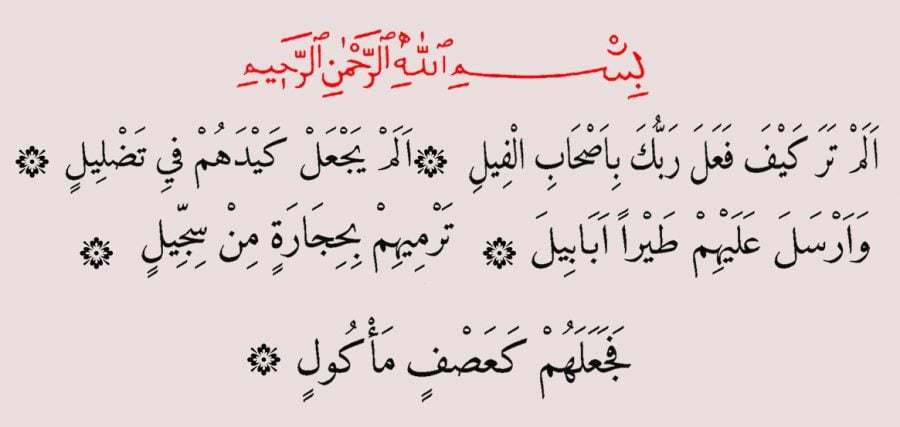 بِسْمِ ٱللّٰهِ ٱلرَّحْمٰنِ ٱلرَّحِيمِ
اَلَمْ تَرَ كَيْفَ فَعَلَ رَبُّكَ بِاَصْحَابِ الْفِيلِ ۞ اَلَمْ يَجْعَلْ كَيْدَهُمْ فِي تَضْلِيلٍ ۞
وَاَرْسَلَ عَلَيْهِمْ طَيْراً اَبَابِيلَ ۞ تَرْمِيهِمْ بِحِجَارَةٍ مِنْ سِجِّيلٍ ۞
فَجَعَلَهُمْ كَعَصْفٍ مَأْكُولٍ ۞